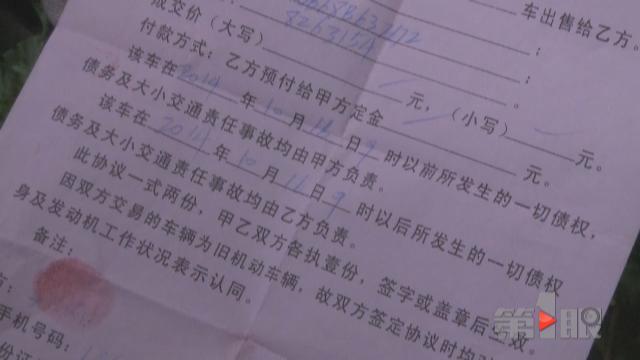 车出售给乙方。
成交价（大写）
元，（小写） 元。
付款方式：乙方预付给甲方定金 元。
该车在2014年10月16日9时以前所发生的一切债权，
债务及大小交通责任事故均由甲方负责。
该车在2014年10月16日9时以后所发生的一切债权
债务及大小交通责任事故均由乙方负责。
此协议一式两份，甲乙双方各执壹份，签字或盖章后
因双方交易的车辆为旧机动车辆，故双方签定协议时
身及发动机工作状况表示认同。
备注：
方：
手机号码：
第1眼